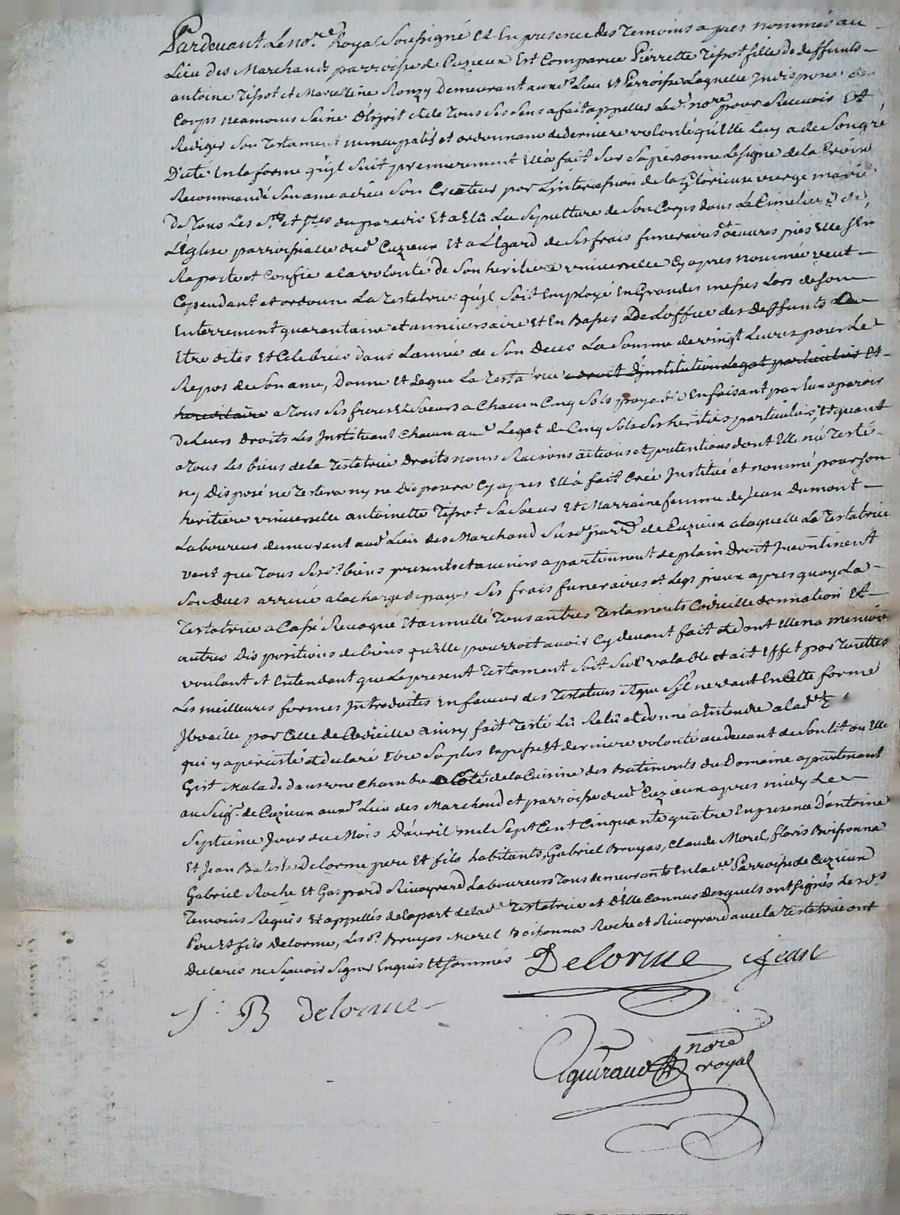 Pardevant Le no.re Royal Soussigné et En presence des Temoins apres nommés au
Lieu des Marchands parroisse de Cuzieux Est Comparue Pierrette Tissot fille de deffunts
antoine Tissot et Marceline Ronzy Demeurant aud. Lieu et Parroisse Laquelle Indisposée de
Corps neamoins Saine D'Esprit et de Tous Ses Sens a fait appeller Led. nore pour Recevoir Et
Rediger Son Testament nuncupatif et ordonnance de derniere volonté qu'Elle Luy a de Son gré
Dicté En la forme qu'yl Suit premierement Ella fait Sur Sa personne Le Signe de la Croix
Recommandé Son ame a dieu Son Createur par L'intercession de la Glorieuse vierge marie
De Tous Les Sts et Stes du paradis Et a Elû La Sepulture de Son Corps dans Le Cimetiere de
L'Eglise parroissialle dud. Cuzieux Et a L'Egard de Ses frais funeraires et œuvres pies Elle S'En
Raporte et Confie a la volonté de Son heritiere universelle Cy apres nommée veut
Cependant et ordonne La Testatrice qu'yl Soit Employé En Grandes messes Lors de Son
Enterrement quarantaine et anniversaire et En Basses de L'office des Deffunts
Etre dites Et Celebrées dans L'année de Son Deces La Somme de vingt Livres pour Le
Repos de Son ame, Donne Et Legue La Testatrice a droit d'institution Legat particulier Et
hereditaire a Tous Ses freres Et Soeurs a Chacun Cinq Sols En faisant par Eux
De Leurs Droits Les Instituant Chacun aud. Legat de Cinq Sols Ses heritiers particuliers, Et quant
a Tous Les biens de la Testatrice Droits noms Raisons actions et pretentions dont Elle n'a Testé
ny Disposé ne Testera ny ne Disposera Cy apres Ell'a fait Crée Institué et nommé pour Son
heritiere universelle antoinette Tissot Sa Soeur Et Marraine femme de Jean Dumont
Laboureur demeurant aud. Lieu des Marchand Susd. parr. de Cuzieux a laquelle La Testatrice
veut que Tous Sesd. biens presents et avenirs apartiennent de plain Droit Incontinent
Son Deces arrivé a la charge de payer Ses frais funeraires et Legs pieux apres quoy La
Testatrice a Cassé Revoqué Et annullé Tous autres Testaments Codicille donnation Et
autres Dispositions de biens qu'elle pourroit avoir Cy devant fait et dont Elle n'a memoire
voulant Et Entendant que Le present Testament Soit Seul valable et ait Effet par Touttes
Les meilleures formes Introduites En faveur des Testateurs Et que S'yl ne vaut En Cette forme
Il vaille par Celle de Codicille ainsy fait Testé Lû Relû et donné a Entendre a lad.
qui y a persisté et declaré Etre Sa plus Expresse Et derniere volonté au devant de Son Lit ou Elle
Git Malade dans une Chambre a Coté de la Cuisine des Batiments du Domaine apartenant
au Seig. de Cuzieux aud. Lieu des Marchand et parroisse dud. Cuzieux apres midy Le
Septieme Jour du Mois D'avril mil Sept Cent Cinquante quatre En presence D'antoine
Et Jean Batiste Delorme pere Et fils habitants, Gabriel Bruyas, Claude Morel, floris Boissonna
Gabriel Roche Et Gaspard Rivoyrard Laboureurs Tous demeurants En lad. Parroisse de Cuzieux
Temoins Requis Et appellés de la part de lad. Testatrice et d'Elle Connus Desquels ont Signés Lesd.s
Pere Et fils Delorme, Lesd. Bruyas Morel Boissonna Roche et Rivoyrard avec la Testatrice ont
Declarés ne Sçavoir Signer Enquis Et Sommés Delorme Jean
J: B Delorme
nore
royal